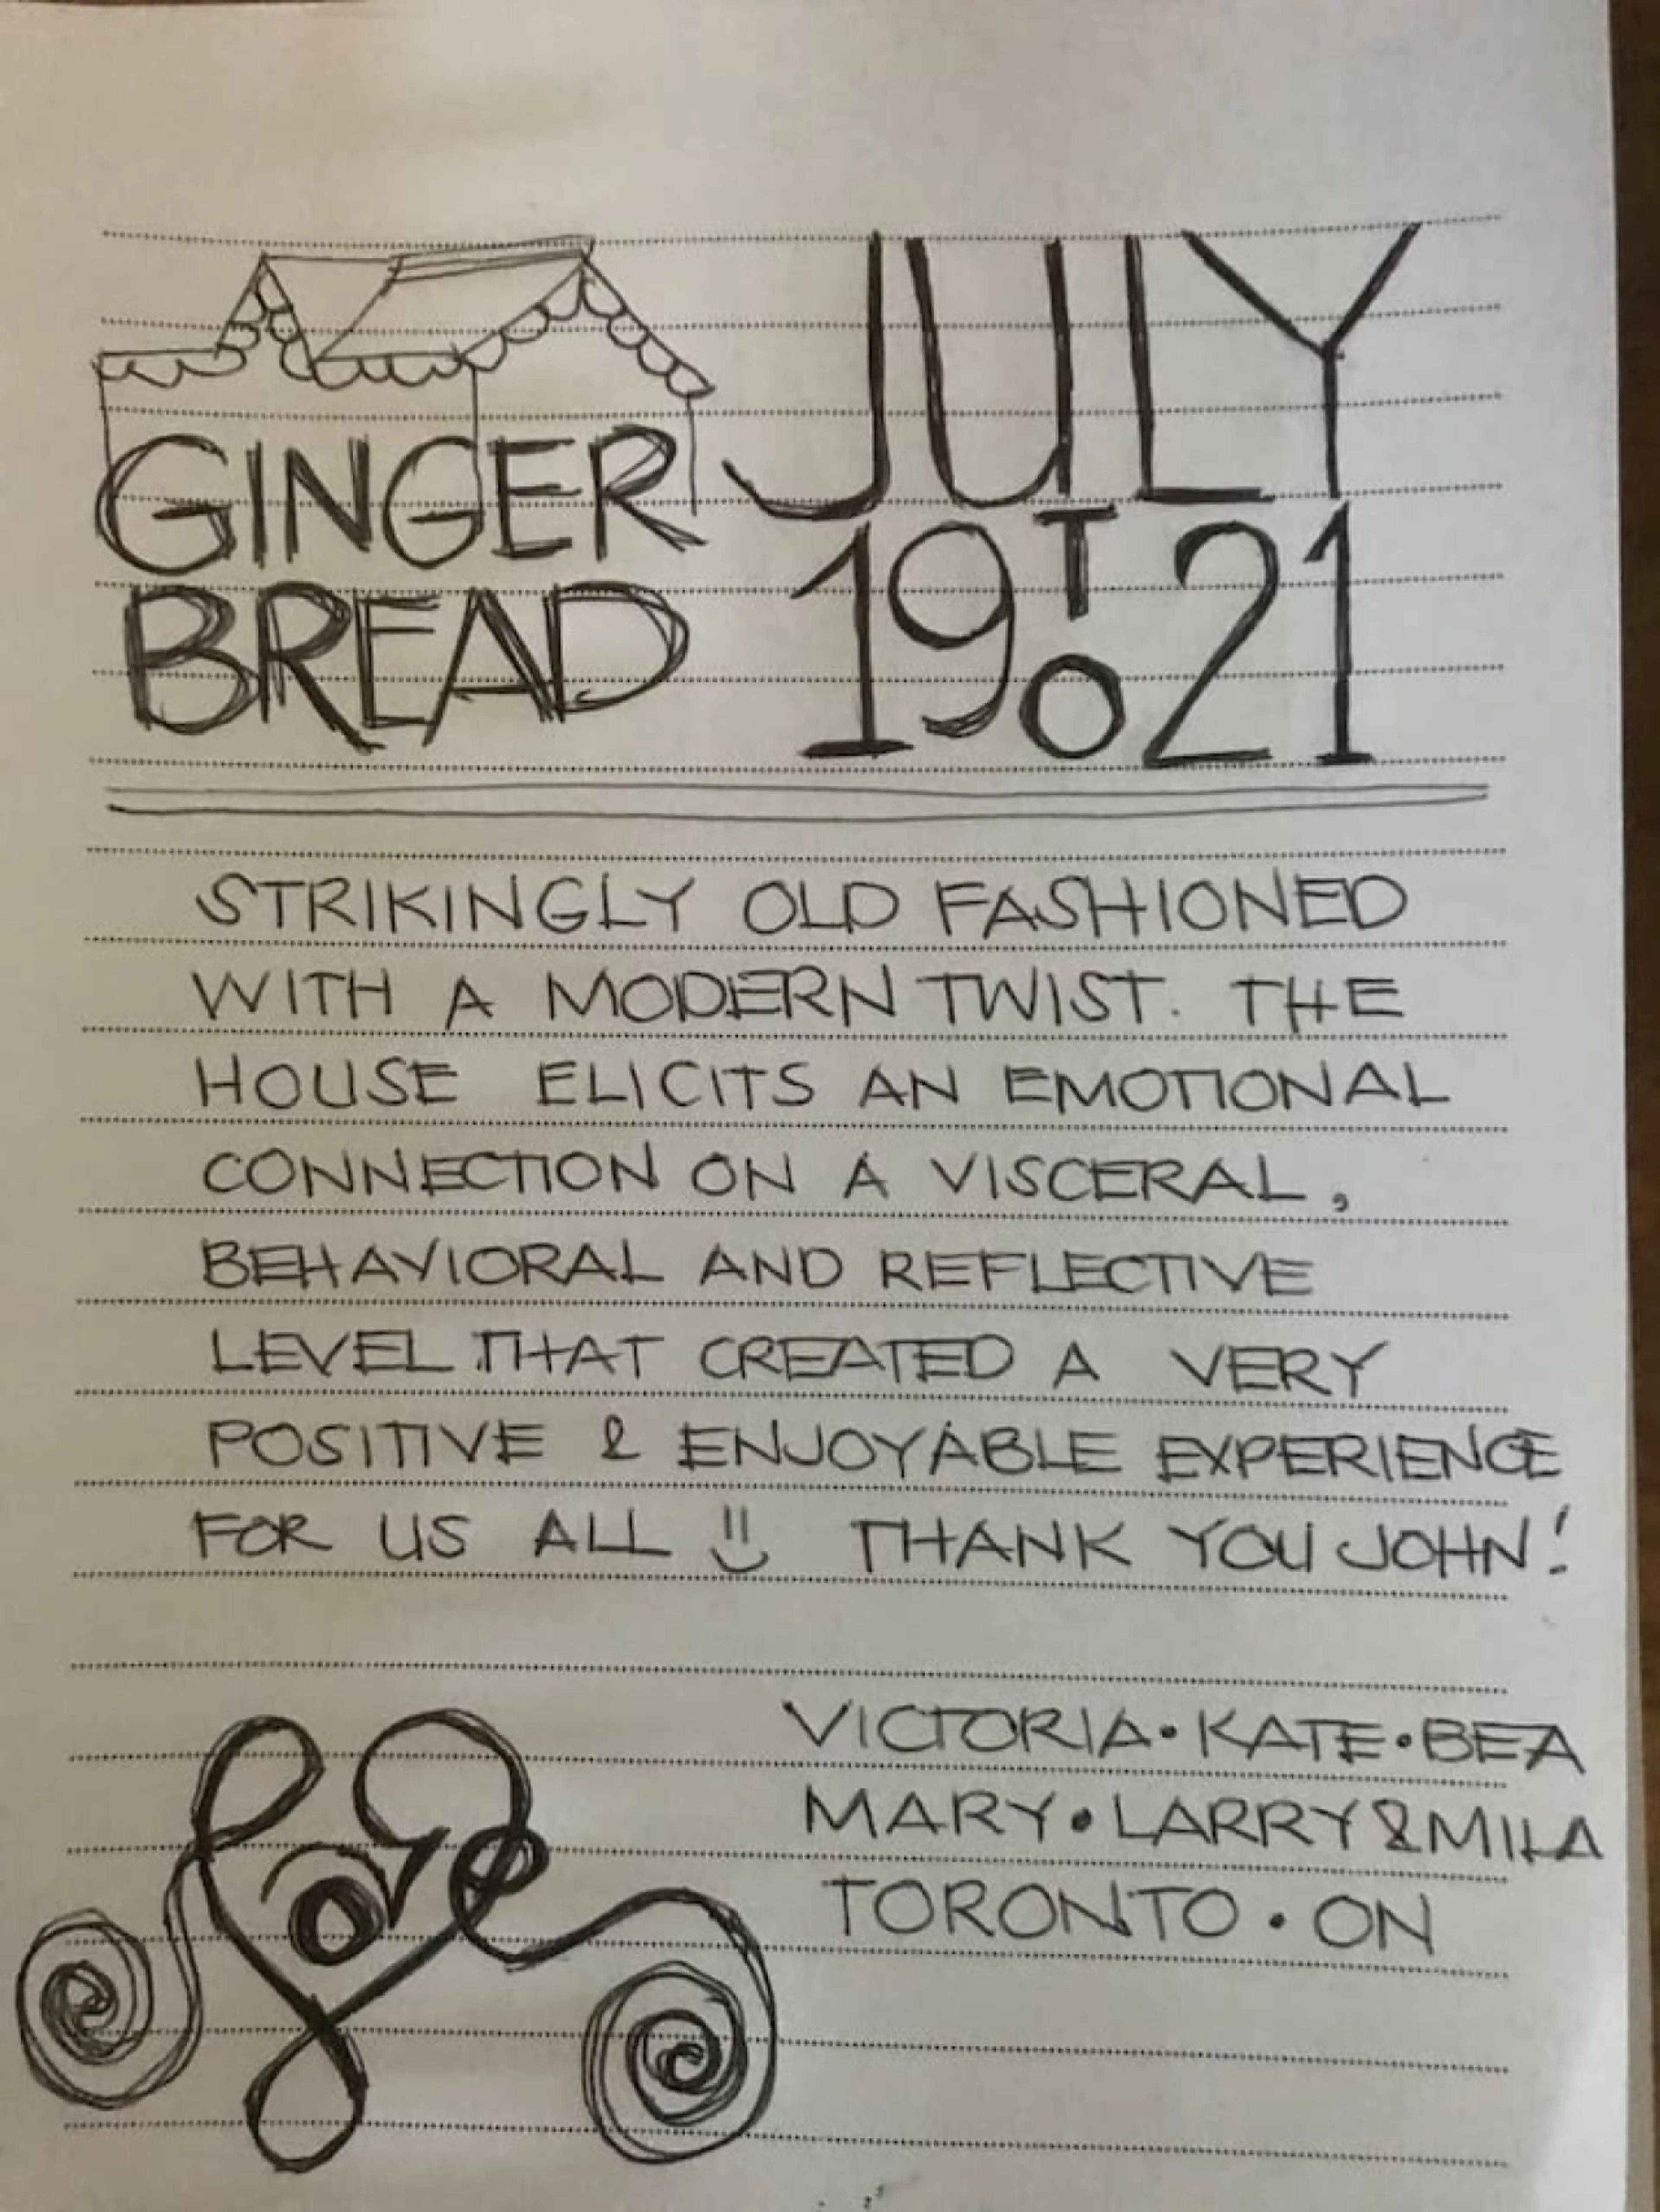 GINGER
BREAD
JULY
19 TO 21
STRIKINGLY OLD FASHIONED
WITH A MODERN TWIST. THE
HOUSE ELICITS AN EMOTIONAL
CONNECTION ON A VISCERAL,
BEHAVIORAL AND REFLECTIVE
LEVEL THAT CREATED A VERY
POSITIVE & ENJOYABLE EXPERIENCE
FOR US ALL :) THANK YOU JOHN!
love
VICTORIA • KATE • BEA
MARY • LARRY & MILA
TORONTO • ON